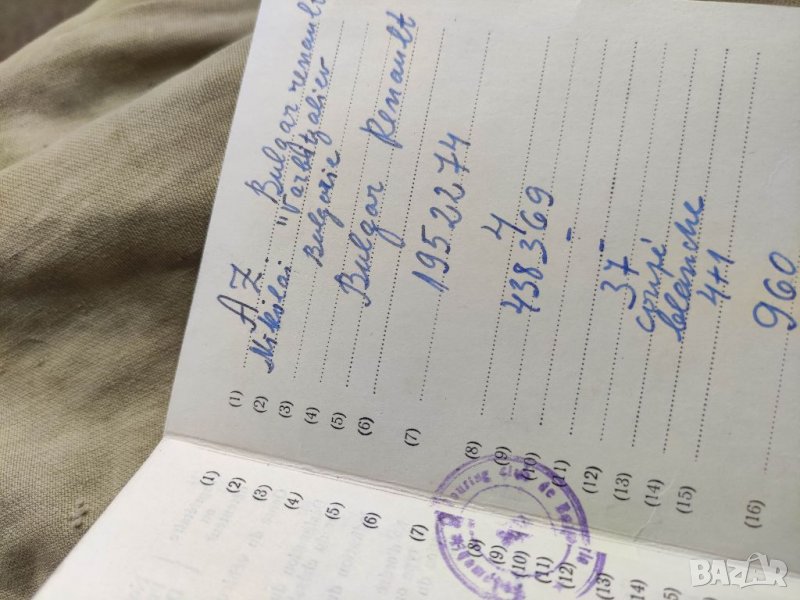 (1) A.Z. Bulgar renault
(2) Nikolai
(3) Bulgarie
(4)
(5) Bulgar Renault
(6)
(7) 1952274
(8) 4
(9) 438369
(10) -
(11) -
(12) 37
(13) coupé
(14) blanche
(15) 4+1
(16) 960
(1)
(2)
(3)
(4)
(5)
(6)
(7)
(8)
(9)
(10)
(11)
(12)
(13)
(14)
(15)
BAZAR